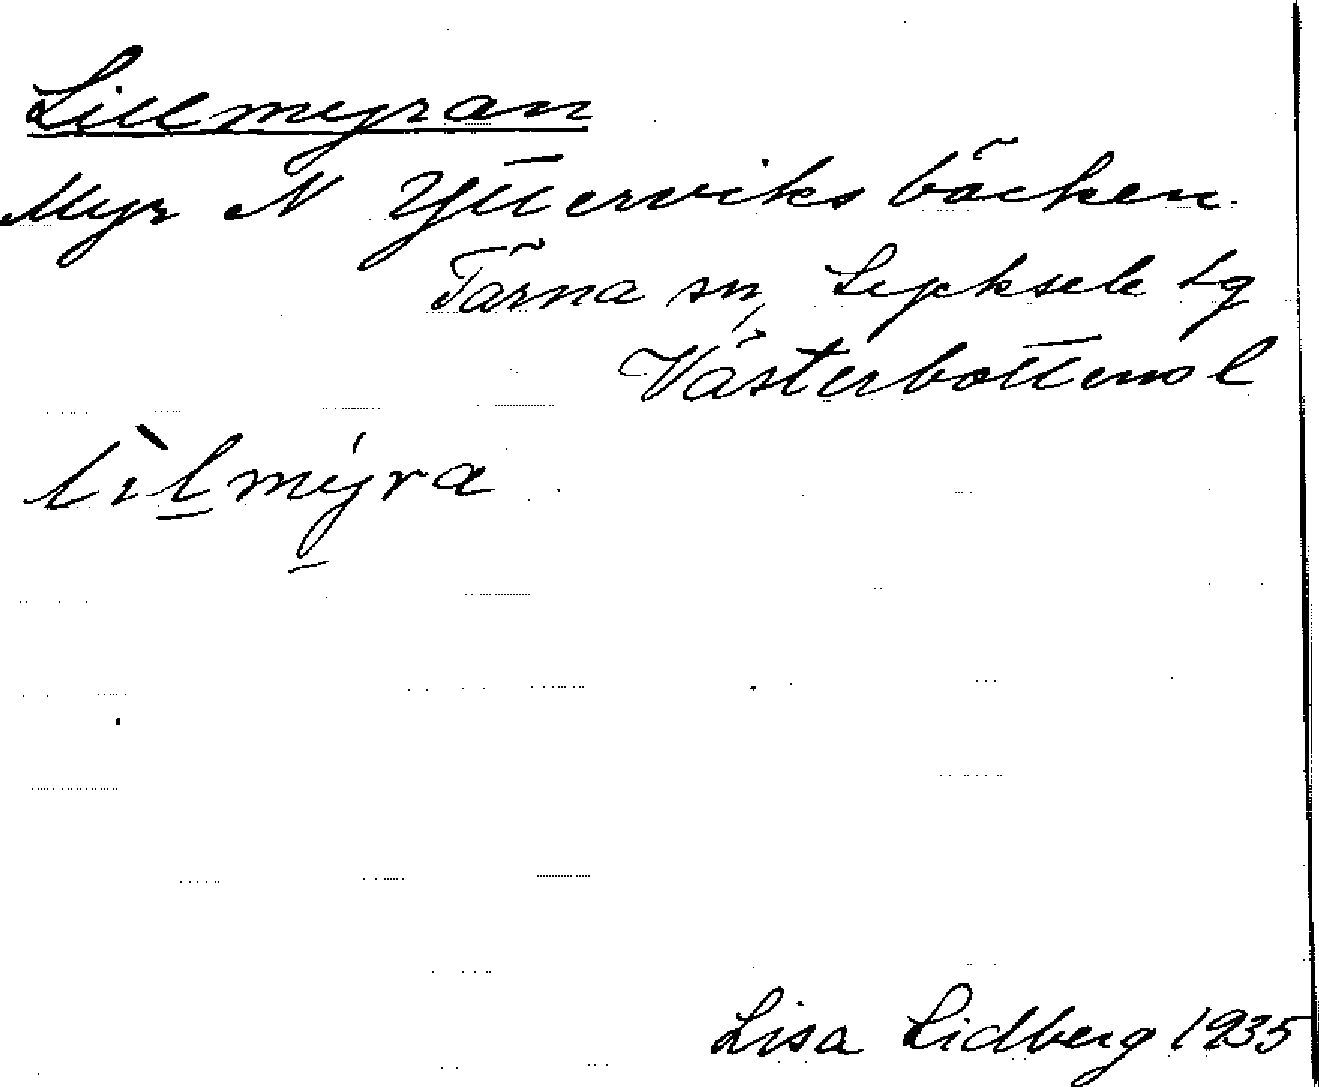 Lillmyran
Myr N Ytterviksbäcken.
Tärna sn, Lycksele tg
Västerbottens l
lìlmýra
Lisa Lidberg 1935